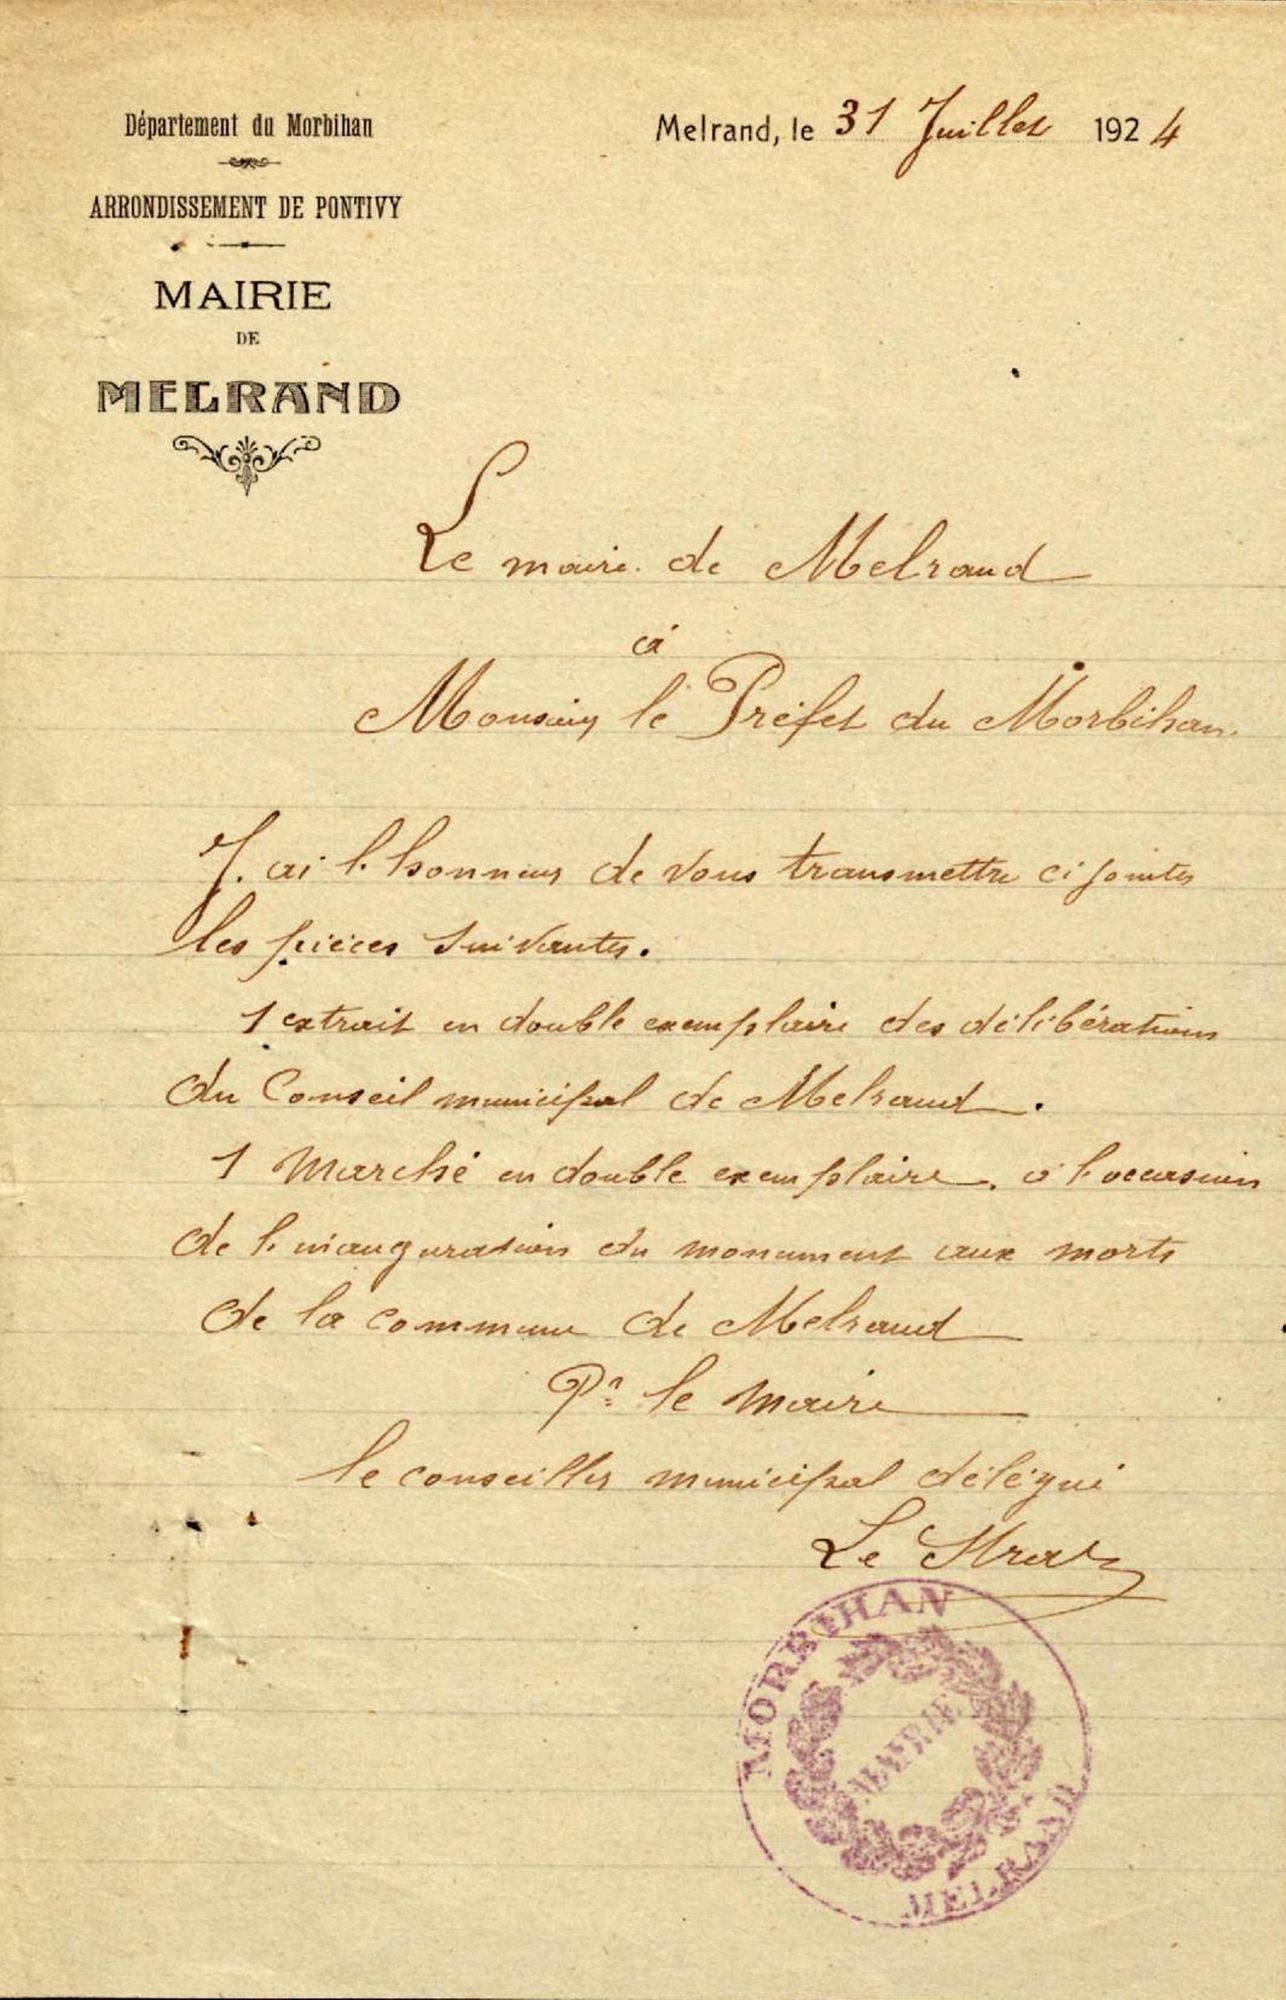 Département du Morbihan
ARRONDISSEMENT DE PONTIVY
MAIRIE
DE
MELRAND
Melrand, le 31 Juillet 1924
Le maire de Melrand
à
Monsieur le Préfet du Morbihan.
J'ai l'honneur de vous transmettre ci jointes
les pièces suivantes.
1 extrait en double exemplaire des délibérations
du Conseil municipal de Melrand.
1 Marché en double exemplaire. à l'occasion
de l'inauguration du monument aux morts
de la commune de Melrand
Pr le Maire
le conseiller municipal délégué
Le Strat
MORBIHAN
MAIRIE
MELRAND